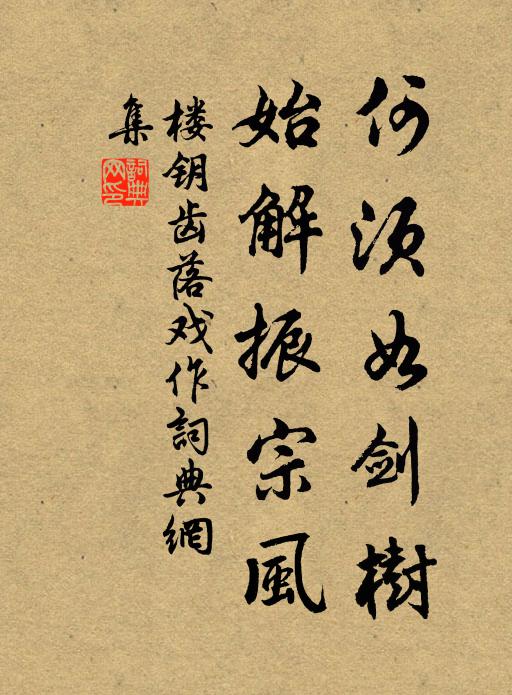 何须如剑樹
始解振宗風
楼钥齿落戏作詞典網
集
詞典
网印